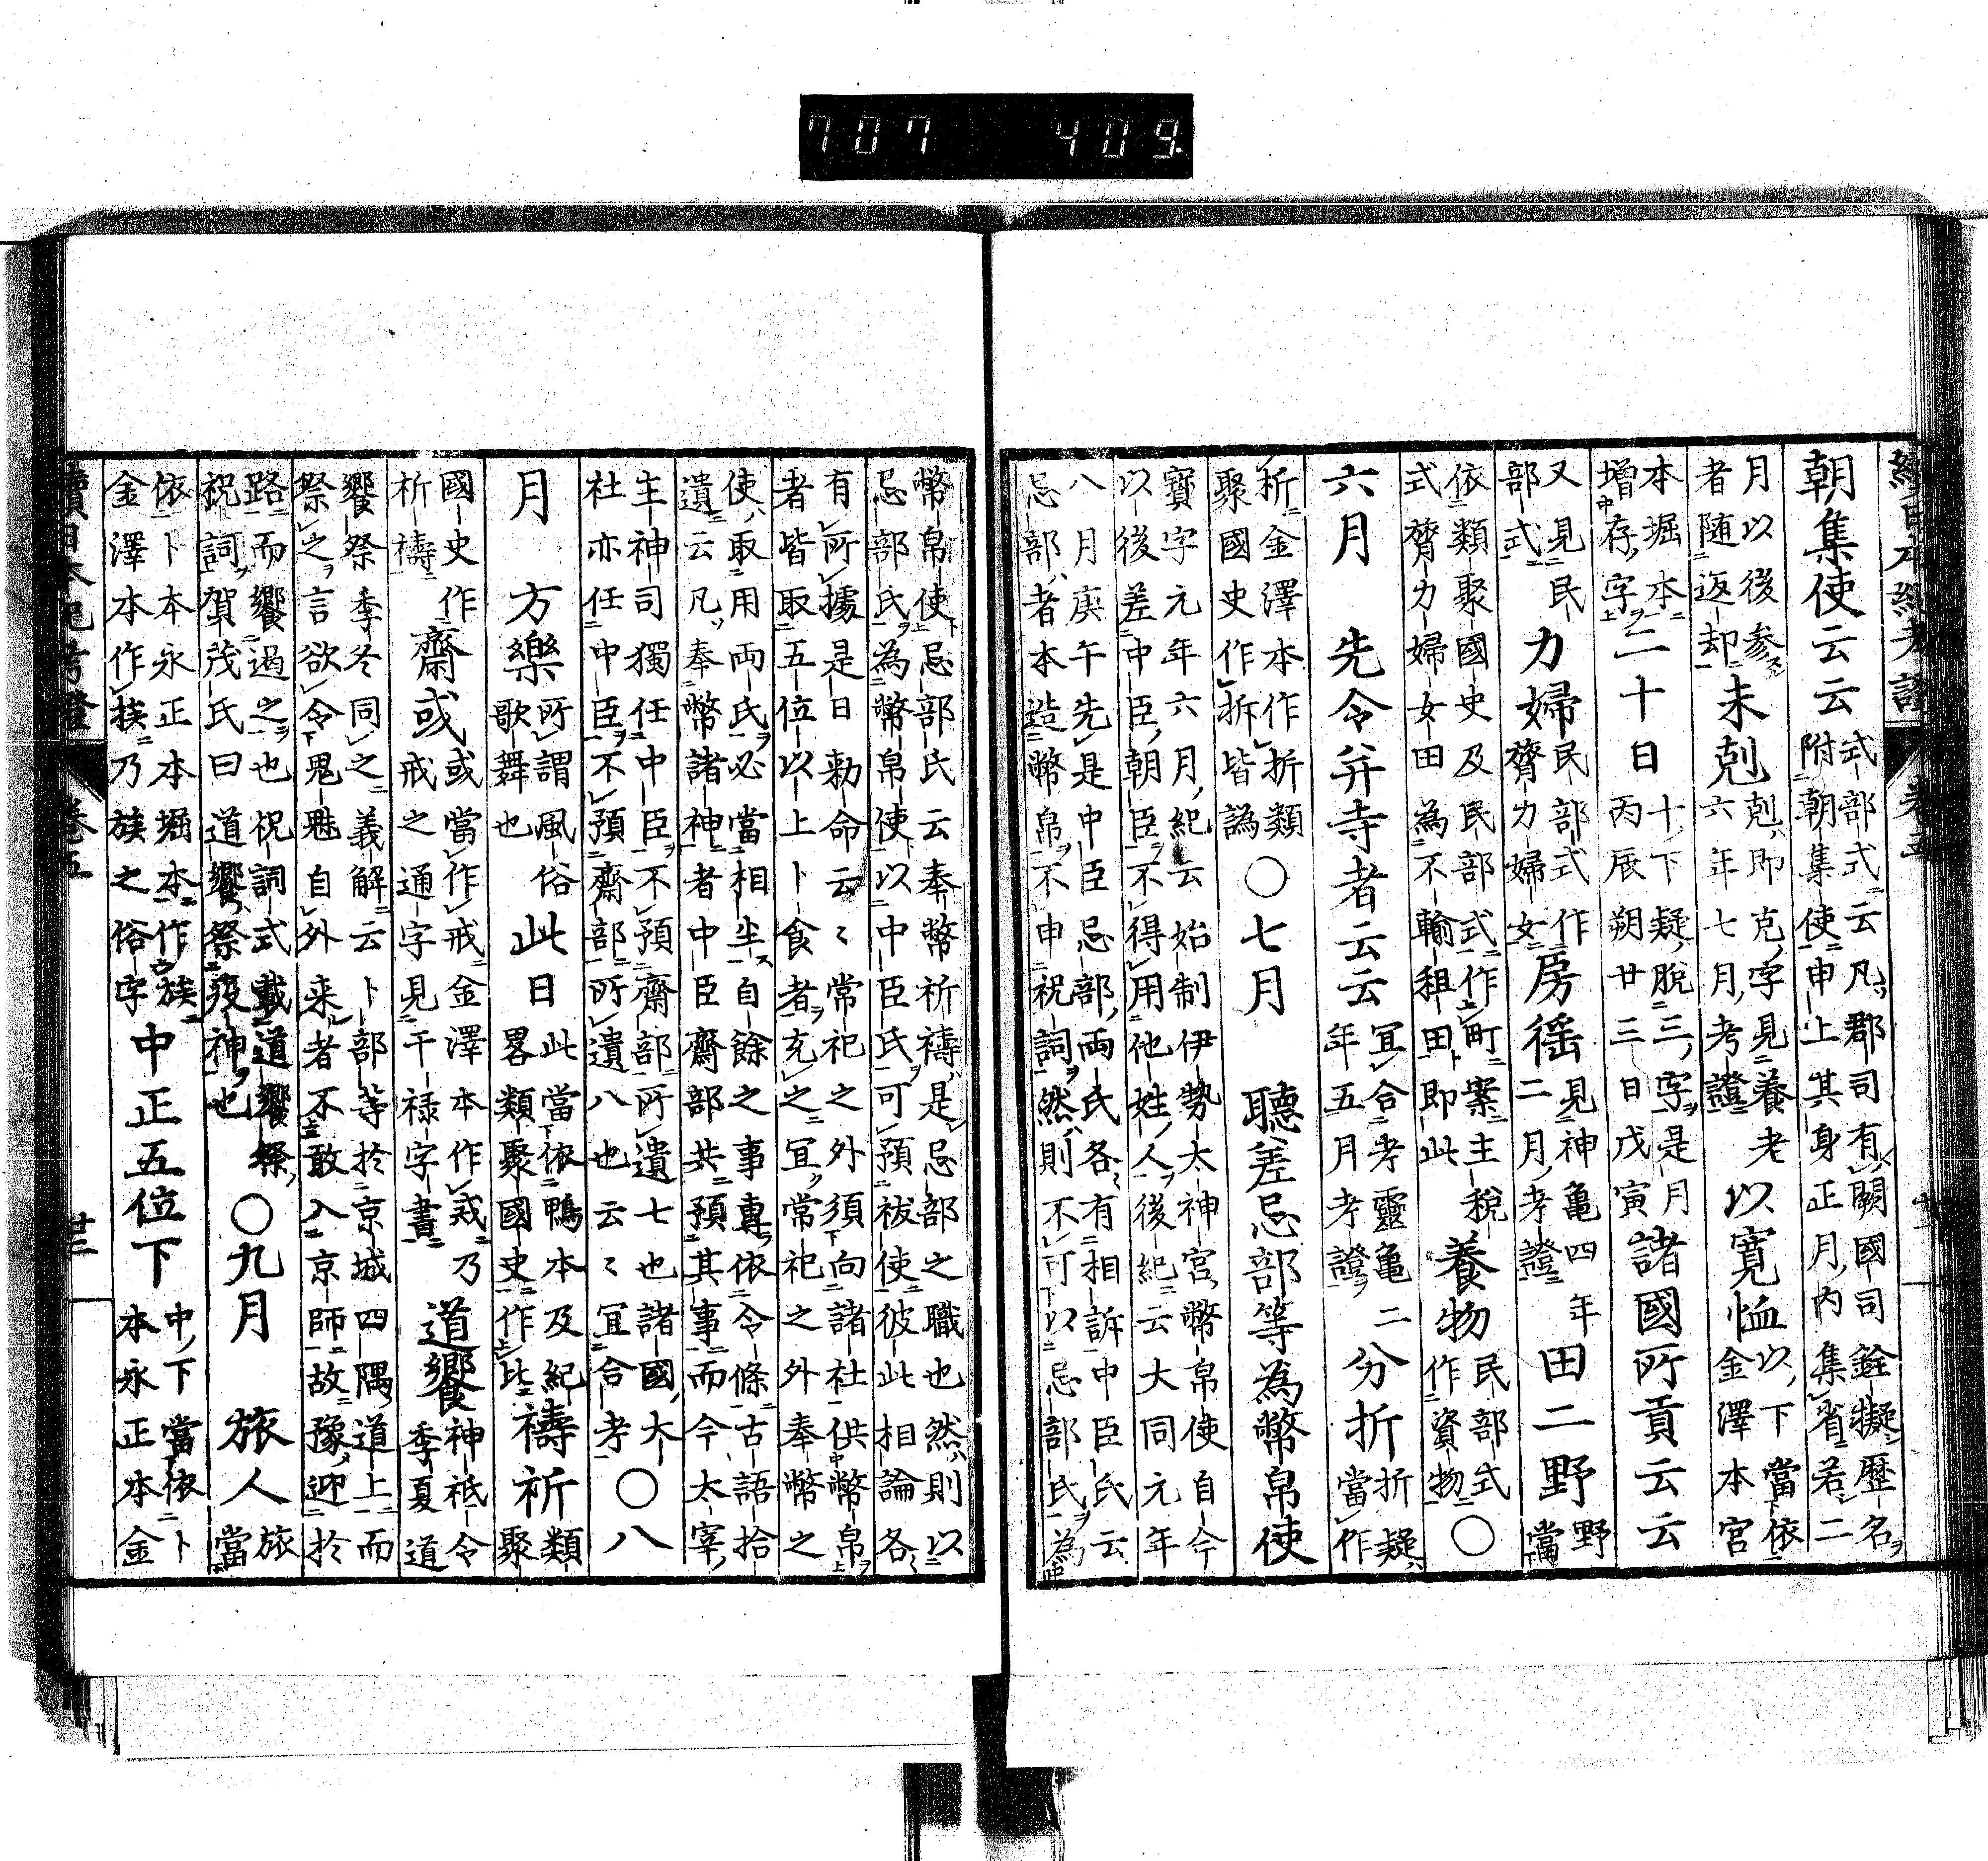 續日本紀考證 卷五
朝集使云云式部式云凡郡司有闕國司銓擬歷名附朝集使申上其身正月內集省若二
月以後参者随返却未剋剋即克字見養老六年七月考證以寬恤以下當依金澤本官
本堀本增存字二十日十下疑脫三字是月丙辰朔廿三日戊寅諸國所貢云云
又見民部式力婦民部式作膂力婦女房徭見神龜四年二月考證田二野野當
依類聚國史及民部式作町案主稅式膂力婦女田為不輸租田即此養物民部式作資物○
六月 先令并寺者云云冝合考靈龜二年五月考證分折折疑當作
析金澤本作折類聚國史作拆皆譌○七月 聽差忌部等為幣帛使
寶字元年六月紀云始制伊勢太神宮幣帛使自今以後差中臣朝臣不得用他姓人後紀云大同元年
八月庚午先是中臣忌部兩氏各有相訴中臣氏云忌部者本造幣帛不申祝詞然則不可以忌部氏為
幣帛使忌部氏云奉幣祈禱是忌部之職也然則以忌部氏為幣帛使以中臣氏可預祓使彼此相論各
有所據是日勅命云云常祀之外須向諸社供幣帛者皆取五位以上卜食者充之冝常祀之外奉幣之
使取用兩氏必當相半自餘之事專依令條古語拾遺云凡奉幣諸神者中臣齋部共預其事而今太宰
主神司獨任中臣不預齋部所遺七也諸國大社亦任中臣不預齋部所遺八也云云冝合考○八
月 方樂所謂風俗歌舞也此日此當依鴨本及紀畧類聚國史作比禱祈類聚
國史作祈禱齋或或當作戒金澤本作戎乃戒之通字見干禄字書道饗神祇令季夏道
饗祭季冬同之義解云卜部等於京城四隅道上而祭之言欲令鬼魅自外来者不敢入京師故豫迎於
路而饗遏之也祝詞式載道饗祭祝詞賀茂氏曰道饗祭疫神也○九月 旅人旅當
依卜本永正本堀本作族金澤本作㨗乃族之俗字中正五位下中下當依卜本永正本金
續日本紀考證 卷五 廿三